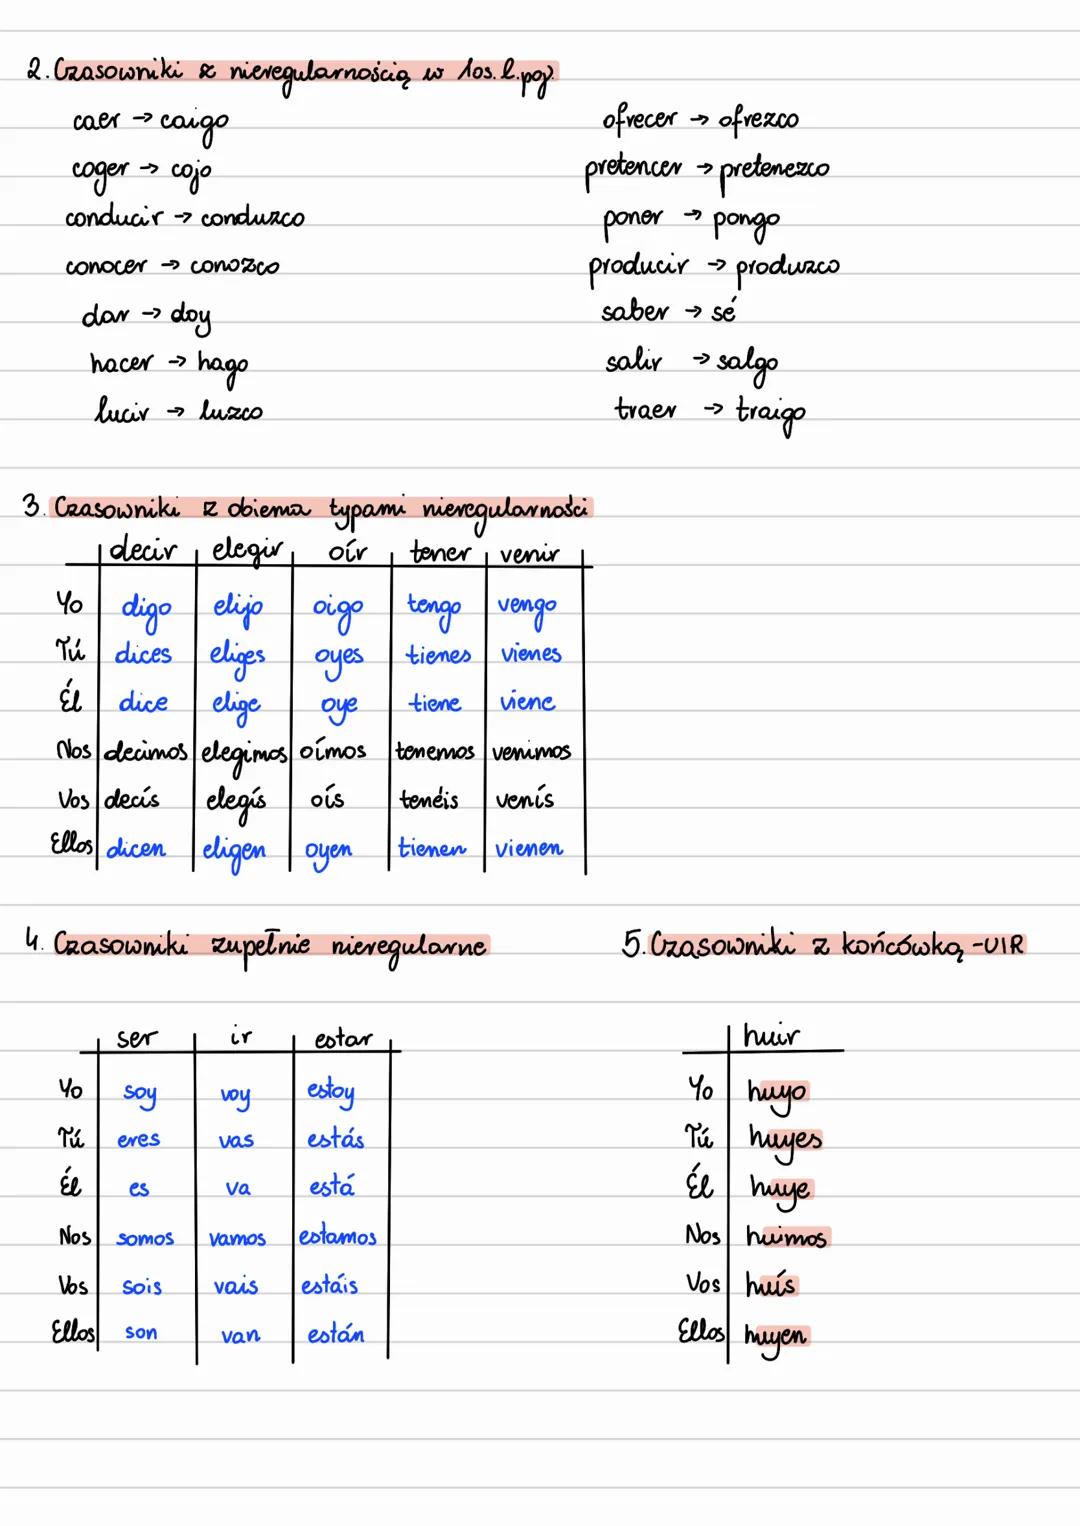 2. Czasowniki z nieregularnością w 1os. l. poj.
caer → caigo
coger → cojo
conducir → conduzco
conocer → conozco
dar → doy
hacer → hago
lucir → luzco
ofrecer → ofrezco
pretencer → pretenezco
poner → pongo
producir → produzco
saber → sé
salir → salgo
traer → traigo
3. Czasowniki z obiema typami nieregularności
decir elegir oír tener venir
Yo digo elijo oigo tengo vengo
Tú dices eliges oyes tienes vienes
Él dice elige oye tiene viene
Nos decimos elegimos oímos tenemos venimos
Vos decís elegís oís tenéis venís
Ellos dicen eligen oyen tienen vienen
4. Czasowniki zupełnie nieregularne
ser ir estar
Yo soy voy estoy
Tú eres vas estás
Él es va está
Nos somos vamos estamos
Vos sois vais estáis
Ellos son van están
5. Czasowniki z końcówką -UIR
huir
Yo huyo
Tú huyes
Él huye
Nos huimos
Vos huís
Ellos huyen